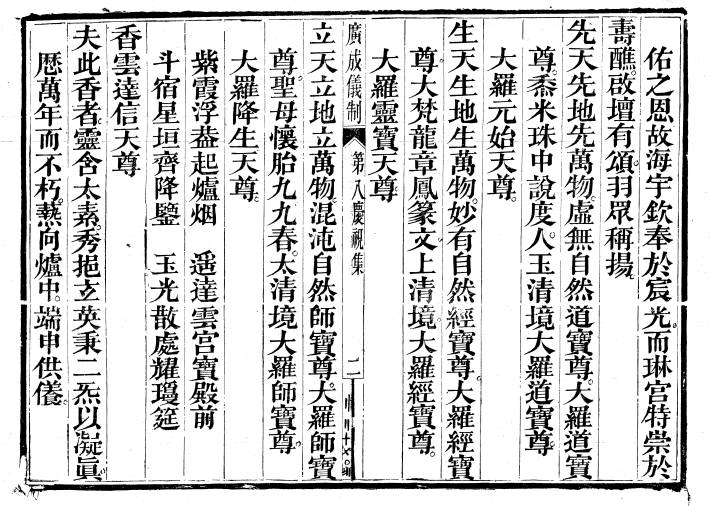 佑之恩故海宇欽奉於宸光。而琳宮特崇於
壽醮。啟壇有頌。羽眾稱揚。
先天先地先萬物。虛無自然道寶尊。大羅道寶
尊。黍米珠中說度人。玉清境大羅道寶尊。
大羅元始天尊。
生天生地生萬物。妙有自然經寶尊。大羅經寶
尊。大梵龍章鳳篆文。上清境。大羅經寶尊。
大羅靈寶天尊
廣成儀制 第八慶祝集 二
立天立地立萬物。混沌自然師寶尊。大羅師寶
尊。聖母懷胎九九春。太清境大羅師寶尊。
大羅降生天尊。
紫霞浮葢起爐烟 遥達雲宮寶殿前
斗宿星垣齊降鑒 玉光散處耀瓊筵
香雲達信天尊
夫此香者。靈含太素。秀挹玄英。秉二炁以凝眞。
歷萬年而不朽。熱向爐中。端申供儀。